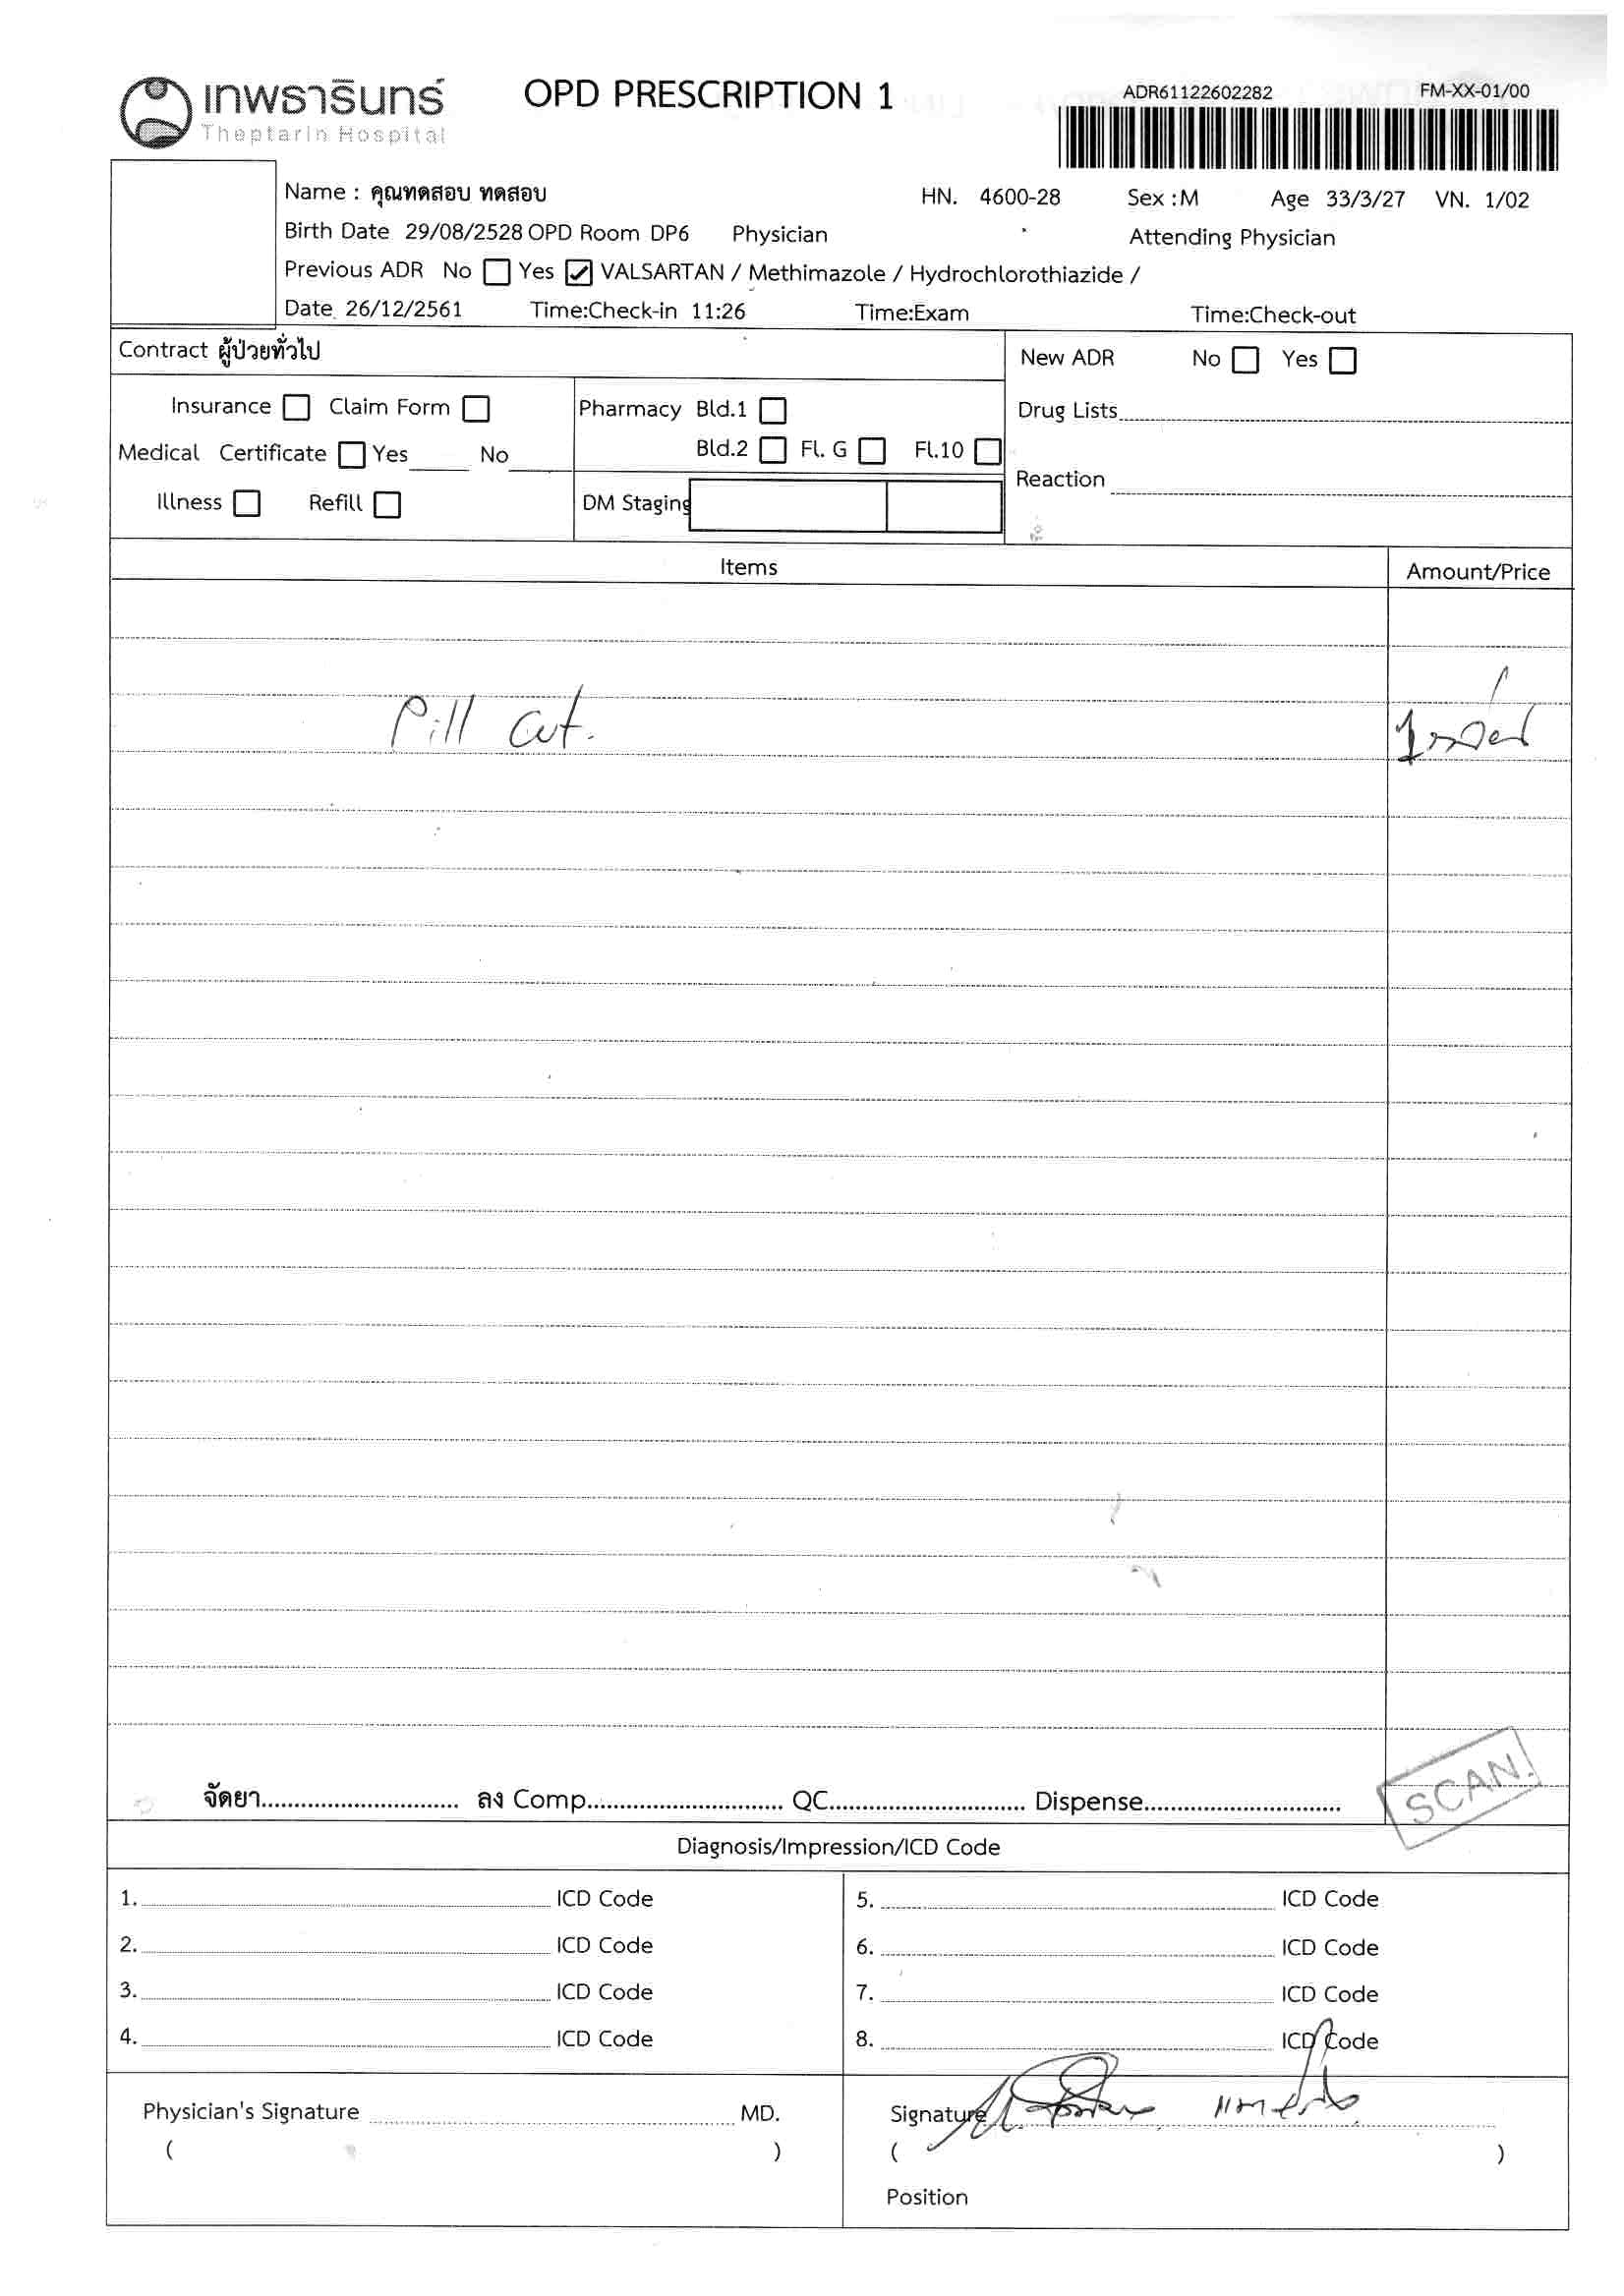 เทพธารินทร์
Theptarin Hospital
OPD PRESCRIPTION 1
ADR61122602282
FM-XX-01/00
Name : คุณทดสอบ ทดสอบ HN. 4600-28 Sex :M Age 33/3/27 VN. 1/02
Birth Date 29/08/2528 OPD Room DP6 Physician Attending Physician
Previous ADR No Yes VALSARTAN / Methimazole / Hydrochlorothiazide /
Date 26/12/2561 Time:Check-in 11:26 Time:Exam Time:Check-out
Contract ผู้ป่วยทั่วไป
New ADR No Yes
Insurance Claim Form Pharmacy Bld.1
Drug Lists
Medical Certificate Yes No
Bld.2 Fl. G Fl.10
Reaction
Illness Refill DM Staging
Items Amount/Price
Pill Cut.
จัดยา............................ ลง Comp............................ QC............................ Dispense............................
SCAN.
Diagnosis/Impression/ICD Code
1. ICD Code 5. ICD Code
2. ICD Code 6. ICD Code
3. ICD Code 7. ICD Code
4. ICD Code 8. ICD Code
Physician's Signature MD. Signature
( ) ( )
Position